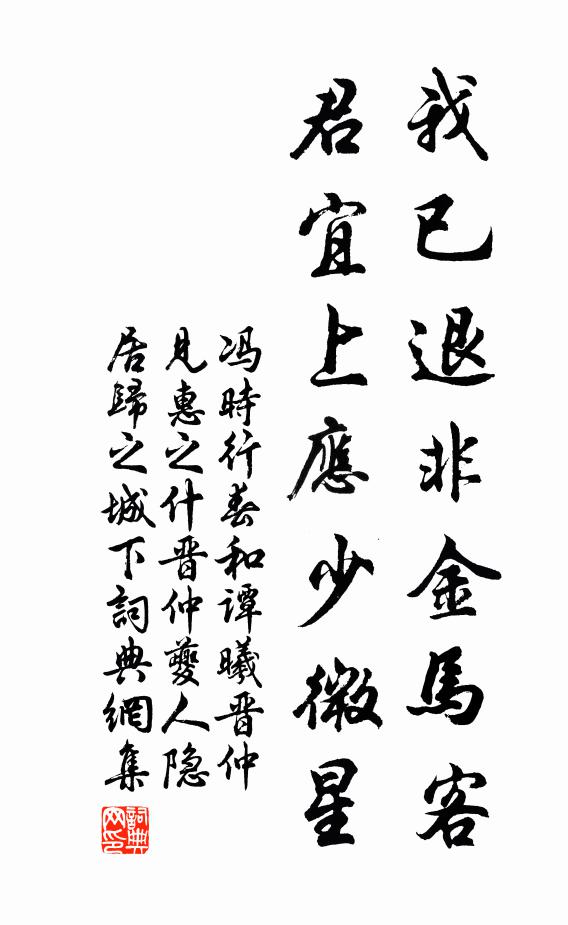 我已退非金馬客
君宜上應少微星
冯時行奉和谭曦晋仲
見惠之什晋仲夔人隐
居歸之城下詞典網集
詞典网印